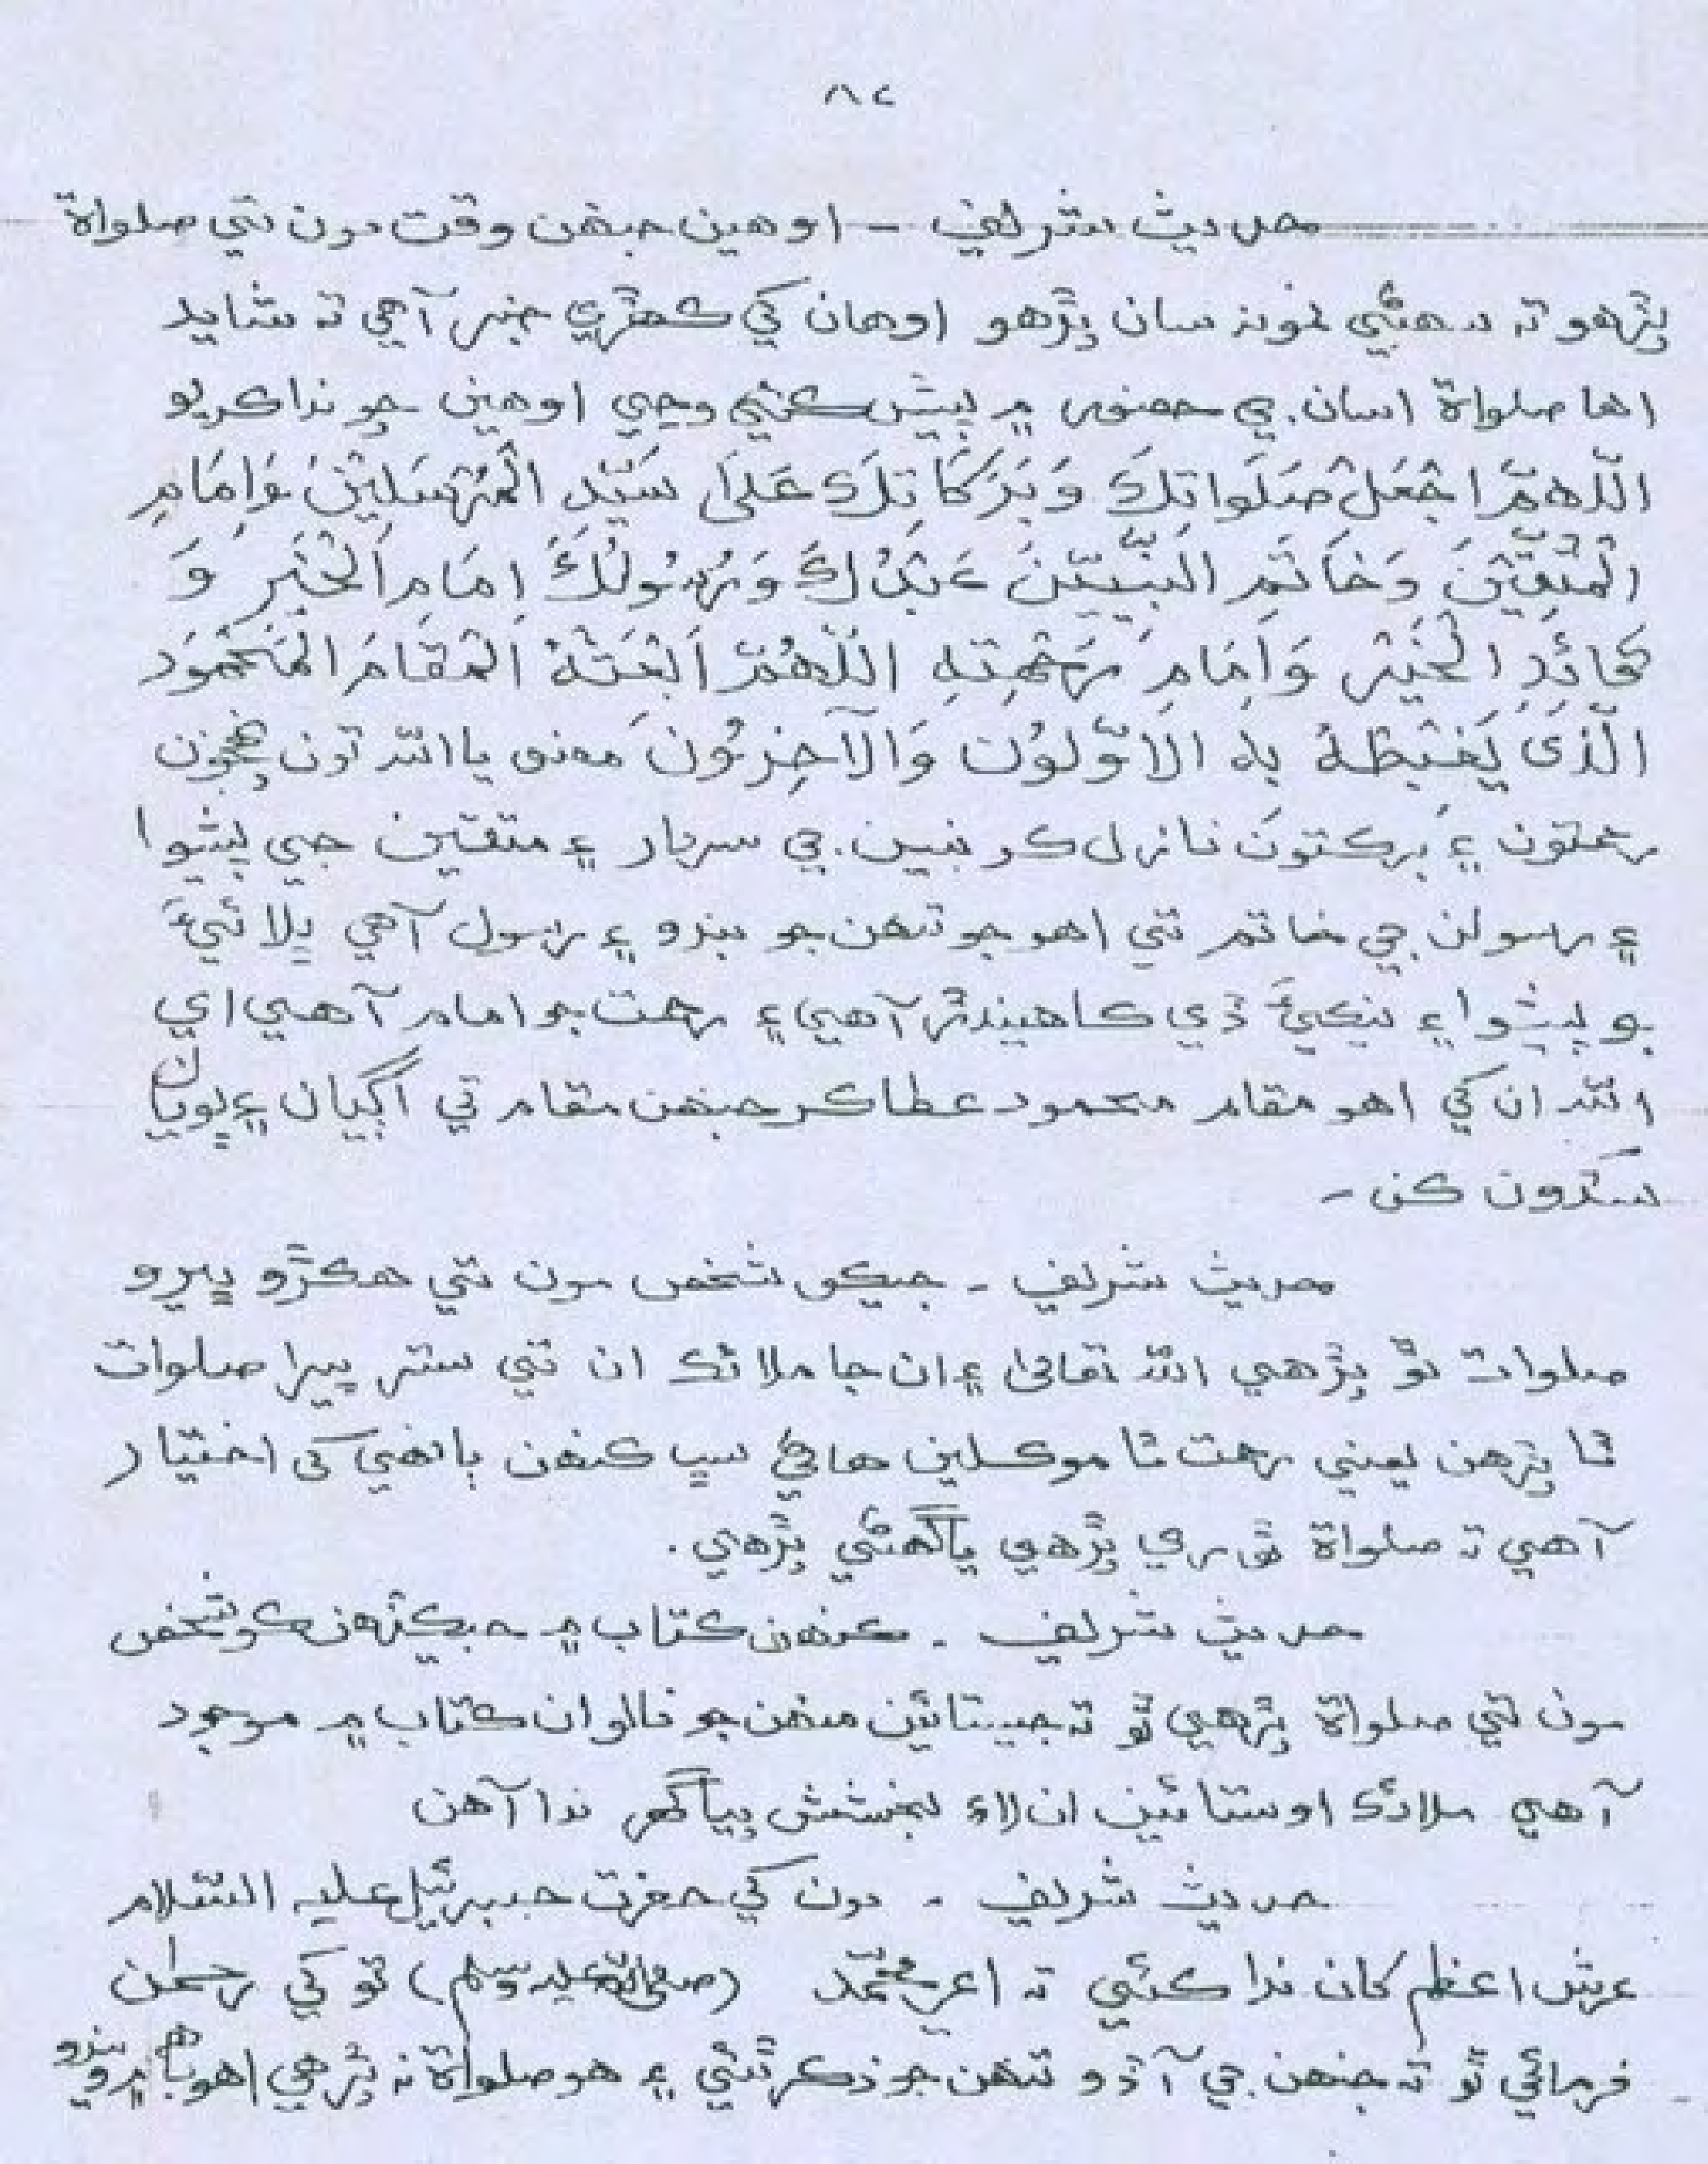 ٨٢
حديث شريف – اوهين جنهن وقت مون تي صلواة
پڙهو ته سهڻي نموني سان پڙهو اوهان کي ڪهڙي خبر آهي ته شايد
اها صلواة اسان جي حضور ۾ پيش ڪئي وڃي اوهين چوندا ڪريو
اللّٰهمّ اجْعَلْ صَلَواتِكَ وَبَرَكَاتِكَ عَلَىٰ سَيِّدِ الْمُرْسَلِيْنَ وَاِمَامِ
الْمُتَّقِيْنَ وَخَاتَمِ النَّبِيِّيْنَ عَبْدِكَ وَرَسُولِكَ اِمَامِ الْخَيْرِ وَ
قَائِدِ الْخَيْرِ وَاِمَامِ رَحْمَتِهِ اَللّٰهُمَّ ابْعَثْهُ الْمَقَامَ الْمَحْمُوَد
الَّذِىْ يَغْبِطُهُ بِهِ الْاَوَّلُوْنَ وَالْآخِرُوْنَ معنيٰ يا الله تون پنهنجون
رحمتون ۽ برڪتون نازل ڪر نبين جي سردار ۽ متقين جي پيشوا
۽ رسولن جي خاتم تي اهو جو تنهن جو بندو ۽ رسول آهي ڀلائيءَ
جو پيشوا ۽ نيڪيءَ ڏي ڪاهيندڙ آهي ۽ رحمت جو امام آهي اي
الله ان کي اهو مقام محمود عطا ڪر جنهن مقام تي اڳيان ۽ پويان
سڌون ڪن –
حديث شريف – جيڪو شخص مون تي هڪڙو ڀيرو
صلوات ٿو پڙهي الله تعاليٰ ۽ ان جا ملائڪ ان تي ستر ڀيرا صلوات
ٿا پڙهن يعني رحمت ٿا موڪلين هاڻي سڀ ڪنهن ٻانهي کي اختيار
آهي ته صلواة ٿوري پڙهي يا گهڻي پڙهي.
حديث شريف – ڪنهن ڪتاب ۾ جيڪڏهن ڪو شخص
مون تي صلواة پڙهي ٿو ته جيستائين منهن جو نالو ان ڪتاب ۾ موجود
آهي ملائڪ اوستائين ان لاءِ بخشش پيا گهرندا آهن
حديث شريف – مون کي حضرت جبرئيل عليه السّلام
عرش اعظم کان ندا ڪئي ته اي محمّد (صلي الله عليه وسلم) تو کي رحمٰن
فرمائي ٿو ته جنهن جي آڏو تنهن جو ذڪر ٿئي ۽ هو صلواة نه پڙهي اهو باهه ۾ ويندو